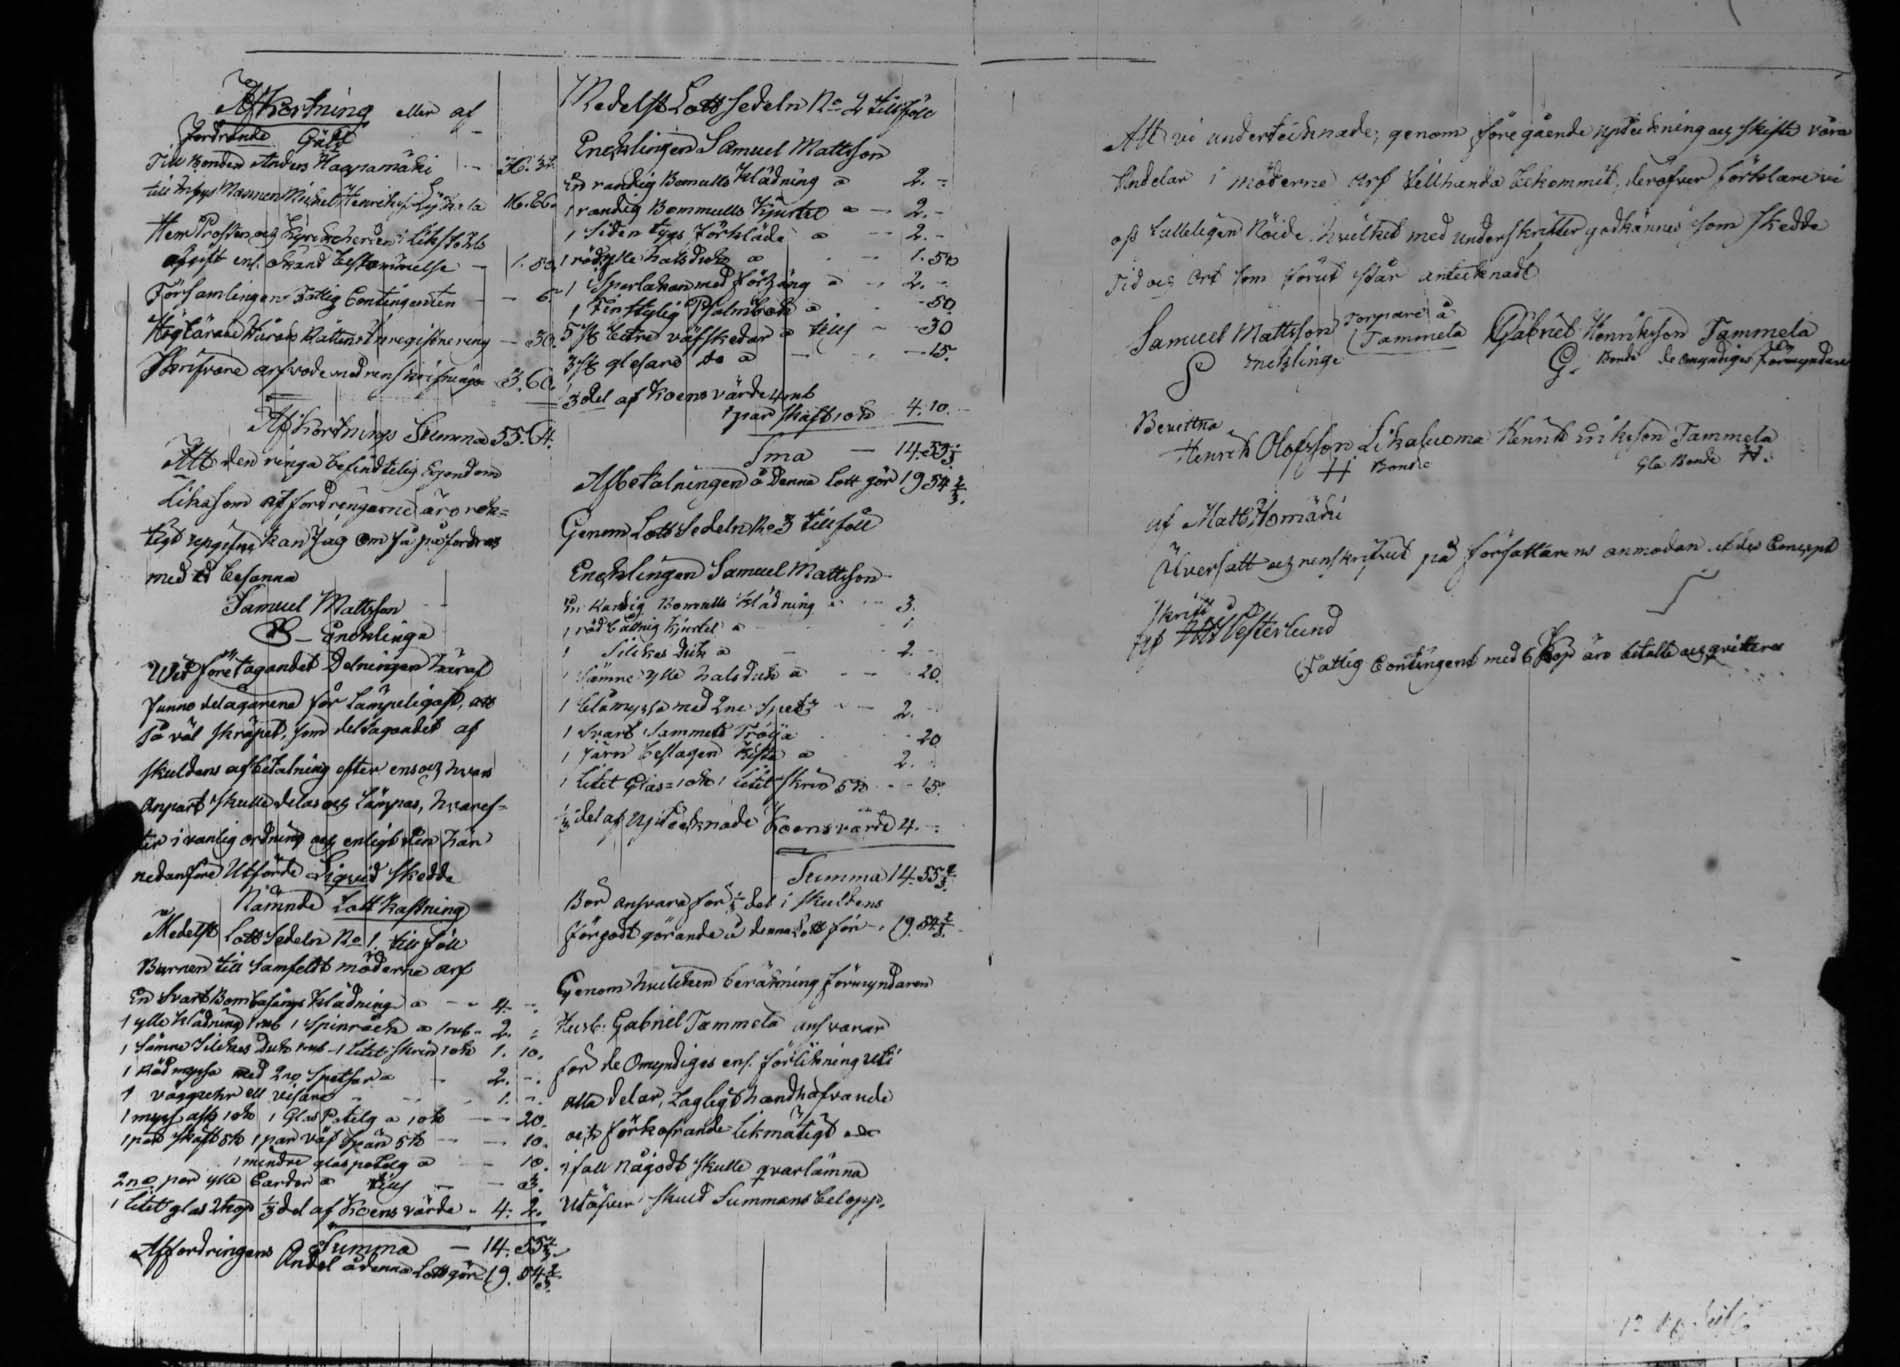 Afkortning eller af
fordrande Gäld
Till Bonden Anders Haapamäki — 36. 32.
till Inhys Mannen Michel Henriksson — 16. 66.
Herr Prosten och Kyrckoherden i Likstohls
afgift enl. ökänd bestämmelse — 1. 50.
Församlingens Fattig Contingenten — 6.
Höglärade Härads Rättens Inregistrering — 30.
Skrifvare arfvode med renskrifninga — 3. 60.
Afkortnings Summa 55. 64.
Att den ringa befindtelig Egendom
Likasom affordringarne äro rik=
tigt uppgifne kan Jag om så påfordras
med ed besanna
Samuel Mattsson
Enchlinge
Wid företagandet Delningen häraf
funno delagarena för lämpeligast, att
så väl skräpet, som deltagandet af
skuldens afbetalning efter ens och hvars
anpart skulle delas och lämpas, hvaref=
ter i vanlig ordning och enligt den här
nedanföre Utförde Liqvid skedde
Nämnde Lottkastning
Medelst Lott Sedeln No 1. till föll
Barnen till samfeldt möderne arf
En Svart Bombasångs Klädning a — 4. —
1 ylle klädning 1 rub 1 Spinrock a 1 rub — 2. —
1 Sämre Silckes Duk 1 rub — 1 Litet skrin 10 k 1. 10.
1 Röd myssa med 2ne Spetsar a — 2. —
1 vägguhr ell visare — 1. —
1 myss ask 10 k 1 Glas Potelg a 10 k — 20.
1 par skaft 5 k 1 par väf spän 5 k — 10.
1 mindre glas potelg a — 10.
2ne par ylle Cardor a — 3.
1 litet glas 2 kop ⅓ del af Koens värde — 4. 2.
Summa — 14. 55⅔
Affordringens Andel å denna Lott gör 19. 54⅔.
Medelst Lott sedeln No 2 tillföll
Enchlingen Samuel Mattsson
En randig Bomulls Klädning a 2. —
1 randig Bommulls Kjortel a — 2. —
1 Siden tygs Förkläde a — 2. —
1 röd ylle halsduk a — 1. 50
1 Sparlakan med förhäng a — 2. —
1 Finstylig Psalmbok a — 50.
5 st bätre väfskedar a — 30
3 st glesare do a — 15.
⅓ del af Koens värde 4 rub
1 par skaft 10 k 4. 10.
Sma — 14. 55⅓
Afbetalningen å denna Lott gör 19 54⅔.
Genom Lott Sedeln No 3 tillföll
Enchlingen Samuel Mattsson
En Randig Bomulls Klädning a — 3.
1 rödbåttnig kjortel a 1.
1 Silckes Duk a — 2. —
1 Sämre ylle halsduk a — 20.
1 blå myssa med 2ne Spets — 2. —
1 Svart Sammets Tröija 20
1 Järn beslagen Kista a 2.
1 litet Glas 10 k 1 litet skrin 5 k — 15.
⅓ del af Uptecknade Koens värde 4. —
Summa 14. 55⅔.
Bör ansvara för ⅓ del i skuldens
förgodt görande å denna Lott för — 19. 54⅔.
Genom hvilcken beräkning förmyndaren
Husb: Gabriel Tammela ansvarar
för de Omyndiges enl. förlikning uti
alla delar, Lagligt handhafvande
och förkofrande likmätigt
ifall någodt skulle qvarlämna
utöfver skuld Summans belopp.
Att vi undertecknade, genom föregående upteckning och skifte våra
Andelar i möderne Arf tillhanda bekommit, deröfver förklare vi
oss tulleligen Nöide hvilket med underskrifter godkännes som skedde
Tid och Ort som förut står antecknadt
Samuel Mattsson Torpare å Tammela Gabriel Henriksson Tammela
S Enchlinge G. Bonde de Omyndiges Förmyndare
Bevittna
Henrik Olofsson Likaluoma Henrik Eriksson Tammela
H Bonde Gla Bonde H.
af Matts Homäki
Öfversatt och renskrifvet på författarens anmodan efter Concept
Westerlund
Fattig Contingent med 6 Kop äro betalte och qvitteras